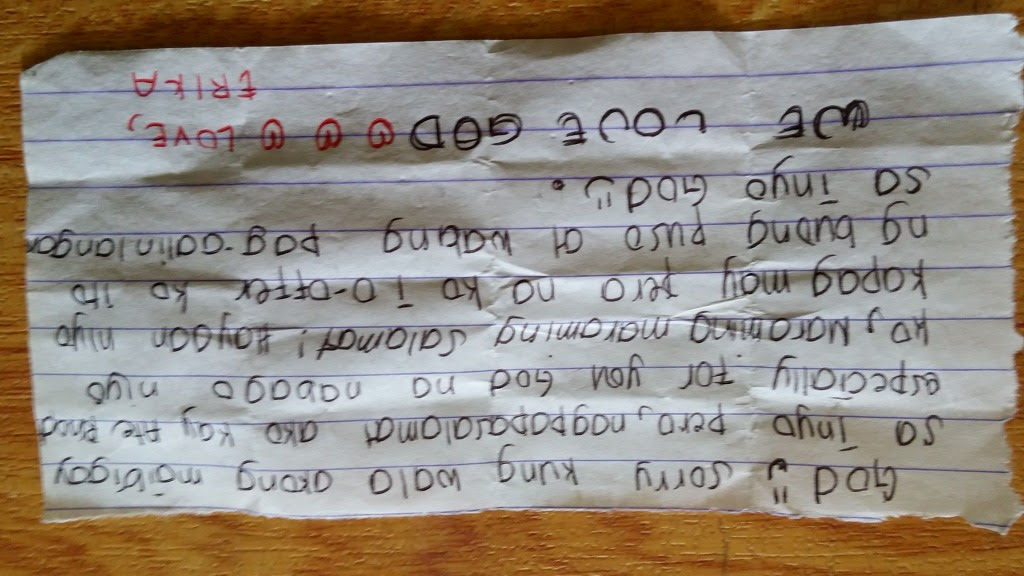 God sorry kung wala akong maibigay
sa inyo pero, nagpapasalamat ako kay Ate
especially for you God na nabago niyo
ko, Maraming maraming salamat! Hayaan niyo
kapag may pera na ko i o-offer ko ito
ng buong puso at walang pag-aalinlangan
sa inyo God.
WE LOVE GOD LOVE,
ERIKA